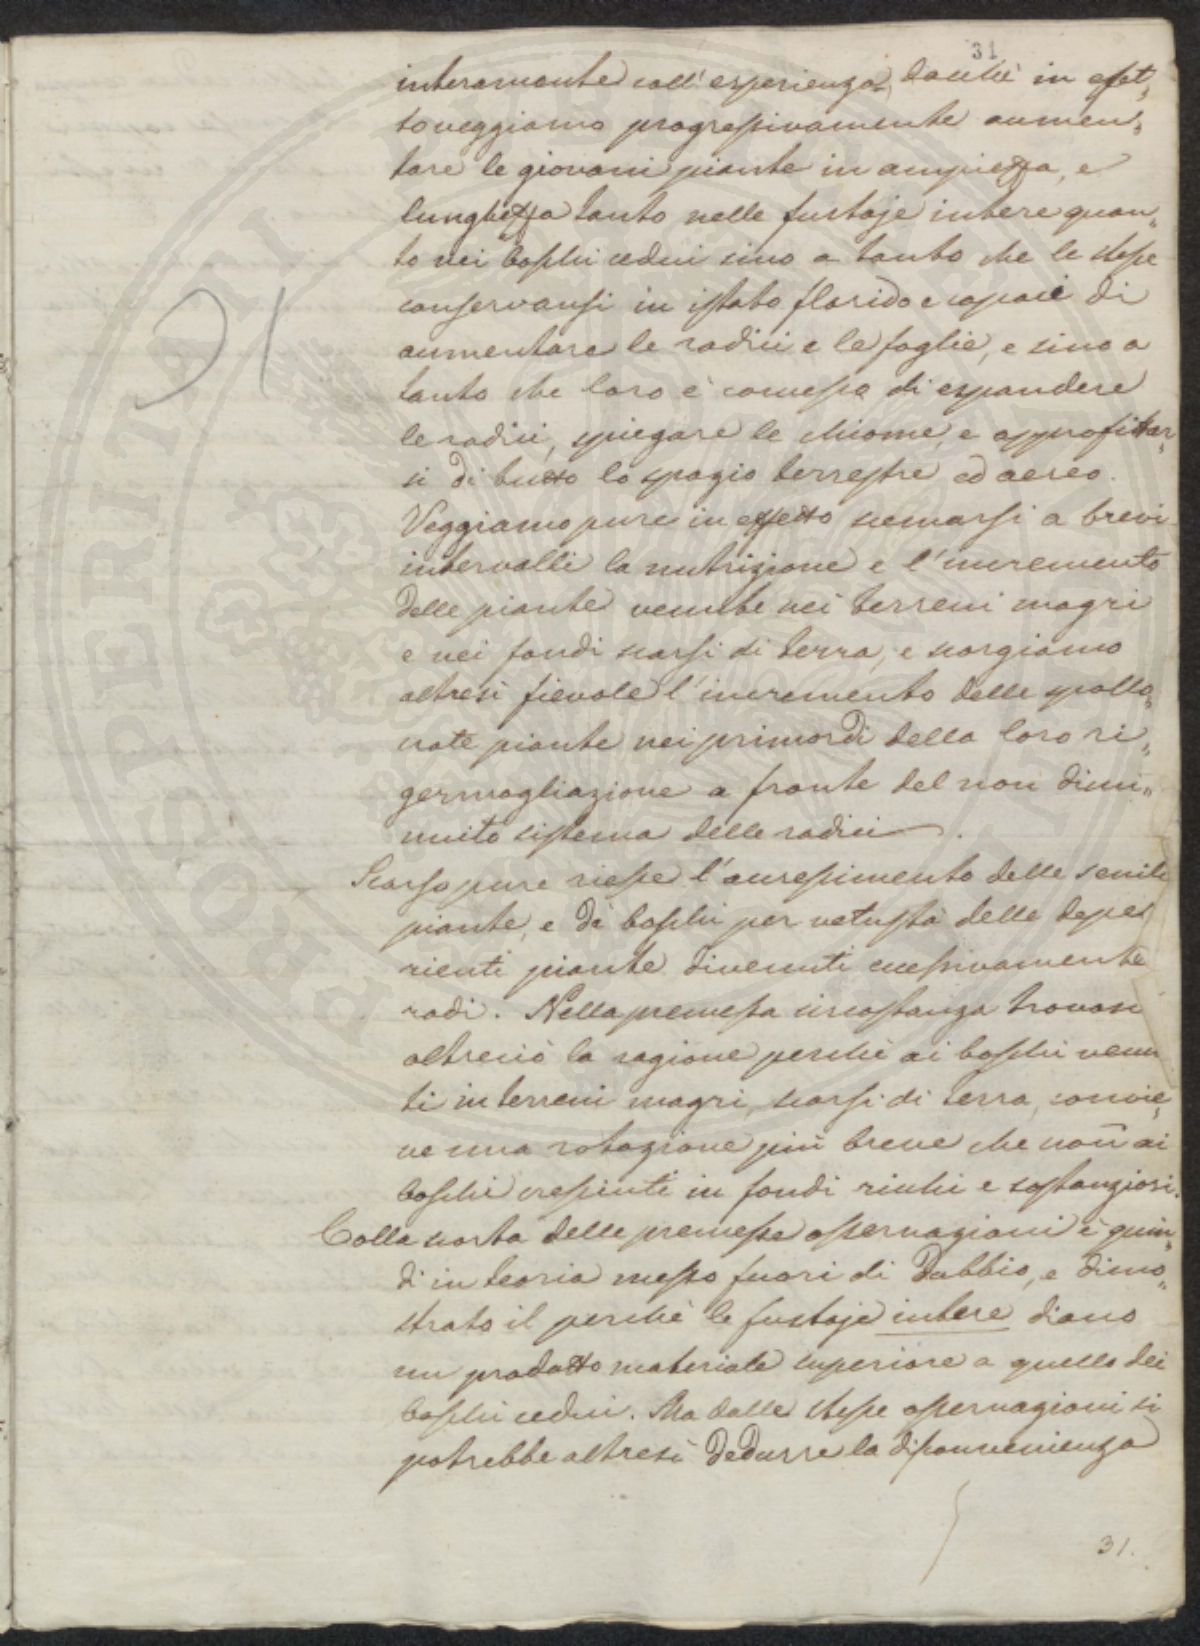 31
interamente coll'esperienza, dacchè in effet„
to veggiamo progressivamente aumen„
tare le giovani piante in ampiezza, e
lunghezza tanto nelle fustaje intere quan„
to nei boschi cedui sino a tanto che le stesse
conservansi in istato florido e capaci di
aumentare le radici e le foglie, e sino a
tanto che loro è concesso di espandere
le radici, spiegare le chiome, e approfittar„
si di tutto lo spazio terrestre ed aereo.
Veggiamo pure in effetto scemarsi a brevi
intervalli la nutrizione e l'incremento
delle piante venute nei terreni magri
e nei fondi scarsi di terra, e scorgiamo
altresì fievole l'incremento delle spollo„
nate piante nei primordi della loro ri„
germogliazione a fronte del non dimi„
nuito sistema delle radici.
Scarso pure riesce l'accrescimento delle senili
piante, e di boschi per vetustà delle depe
rienti piante divenuti eccessivamente
radi. Nella premessa circostanza trovasi
altreciò la ragione perchè ai boschi venu
ti in terreni magri, scarsi di terra, convie„
ne una rotazione più breve che non ai
boschi crescenti in fondi ricchi e sostanziosi.
Colla scorta delle premesse osservazioni è quin„
di in teoria messo fuori di dubbio, e dimo„
strato il perchè le fustaje intere diano
un prodotto materiale superiore a quello dei
boschi cedui. Ma dalle stesse osservazioni si
potrebbe altresì dedurre la disconvenienza
31.
PROSPERITATI PUBLICAE